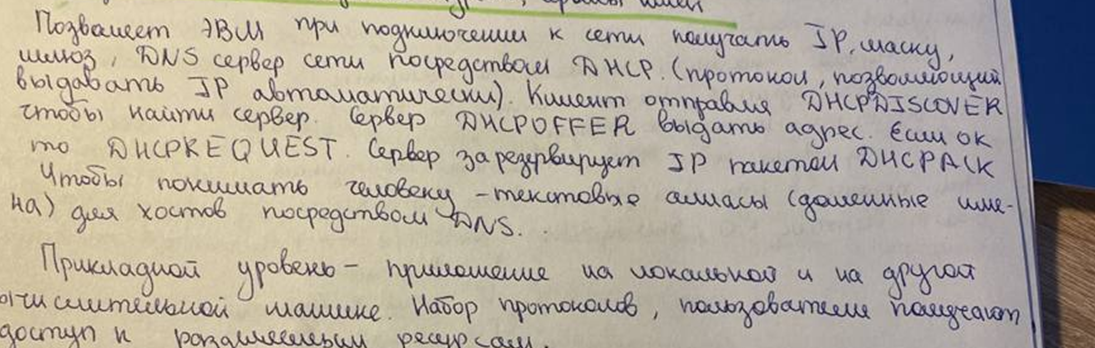 Позволяет ЭВМ при подключении к сети получать IP, маску,
шлюз, DNS сервер сети посредством DHCP. (протокол, позволяющий
выдавать IP автоматически). Клиент отправля DHCPDISCOVER
чтобы найти сервер. Сервер DHCPOFFER выдать адрес. Если ок
то DHCPREQUEST. Сервер зарезервирует IP пакетом DHCPACK
Чтобы понимать человеку - текстовые алиасы (доменные име-
на) для хостов посредством DNS.
Прикладной уровень - приложение на локальной и на другой
вычислительной машине. Набор протоколов, пользователи получают
доступ к разделяемым ресурсам.